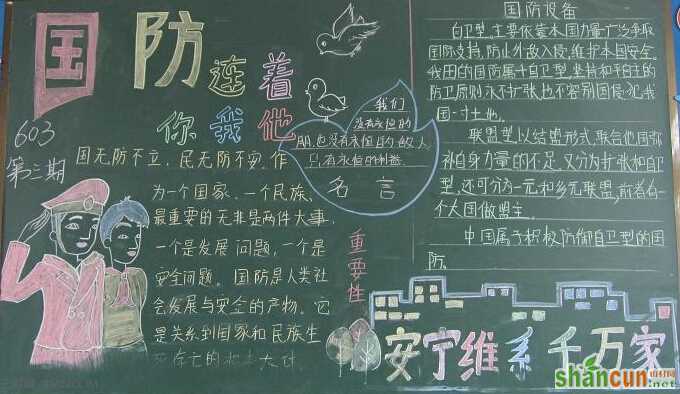 国防连着
你我他
603
第三期
国无防不立,民无防不安.作
为一个国家、一个民族、
最重要的无非是两件大事,
一个是发展问题,一个是
安全问题。国防是人类社
会发展与安全的产物。它
是关系到国家和民族生
死存亡的
大计
重要性
我们
没有永恒的
朋
也没有永恒的敌人
只有永恒的利益
名言
国防设备
自卫型,主要依靠本国力量广泛争取
国际支持,防止外敌入侵,维护本国安全。
我国的国防属于自卫型,坚持和平自主的
防卫原则永不扩张也不容别国侵犯我
国一寸土地。
联盟型以结盟形式,联合他国弥
补自身力量的不足.又分为扩张和自卫
型,还可分为一元和多元联盟,前者有一
个大国做盟主。
中国属于积极防御自卫型的国
防。
安宁维系千万家
shancun
山村网
.net